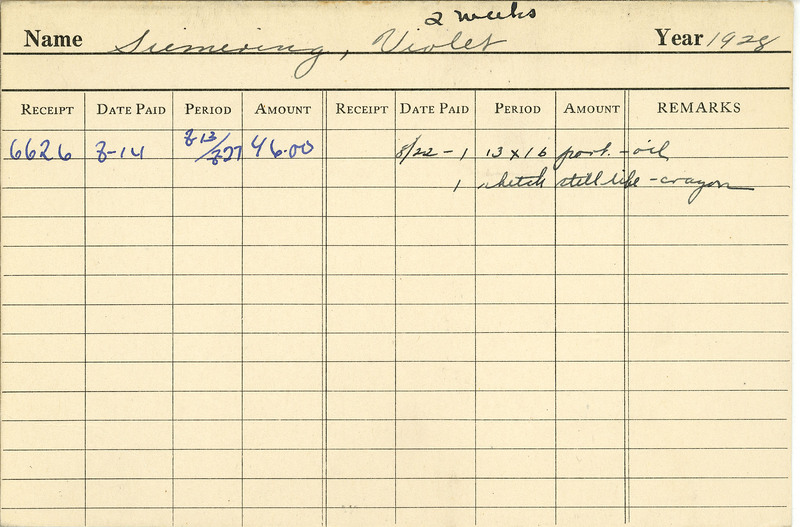 2 weeks
Name Siemering, Violet Year 1928
RECEIPT DATE PAID PERIOD AMOUNT RECEIPT DATE PAID PERIOD AMOUNT REMARKS
6626 8-14 8-13/8-27 46.00 8/22 - 1 13 x 16 port. - oil
1 sketch still life - crayon